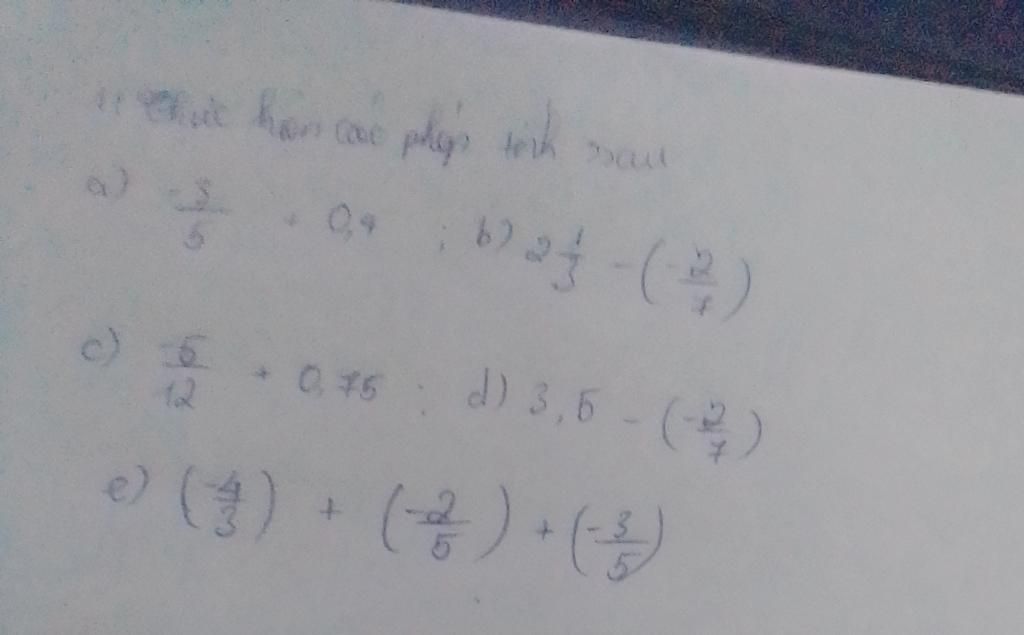 1, Thực hiện các phép tính sau
a) -3/5 + 0,4 ; b) 2 1/3 - (-2/7)
c) -5/12 + 0,75 ; d) 3,5 - (-2/7)
e) (-4/3) + (-2/5) + (-3/5)